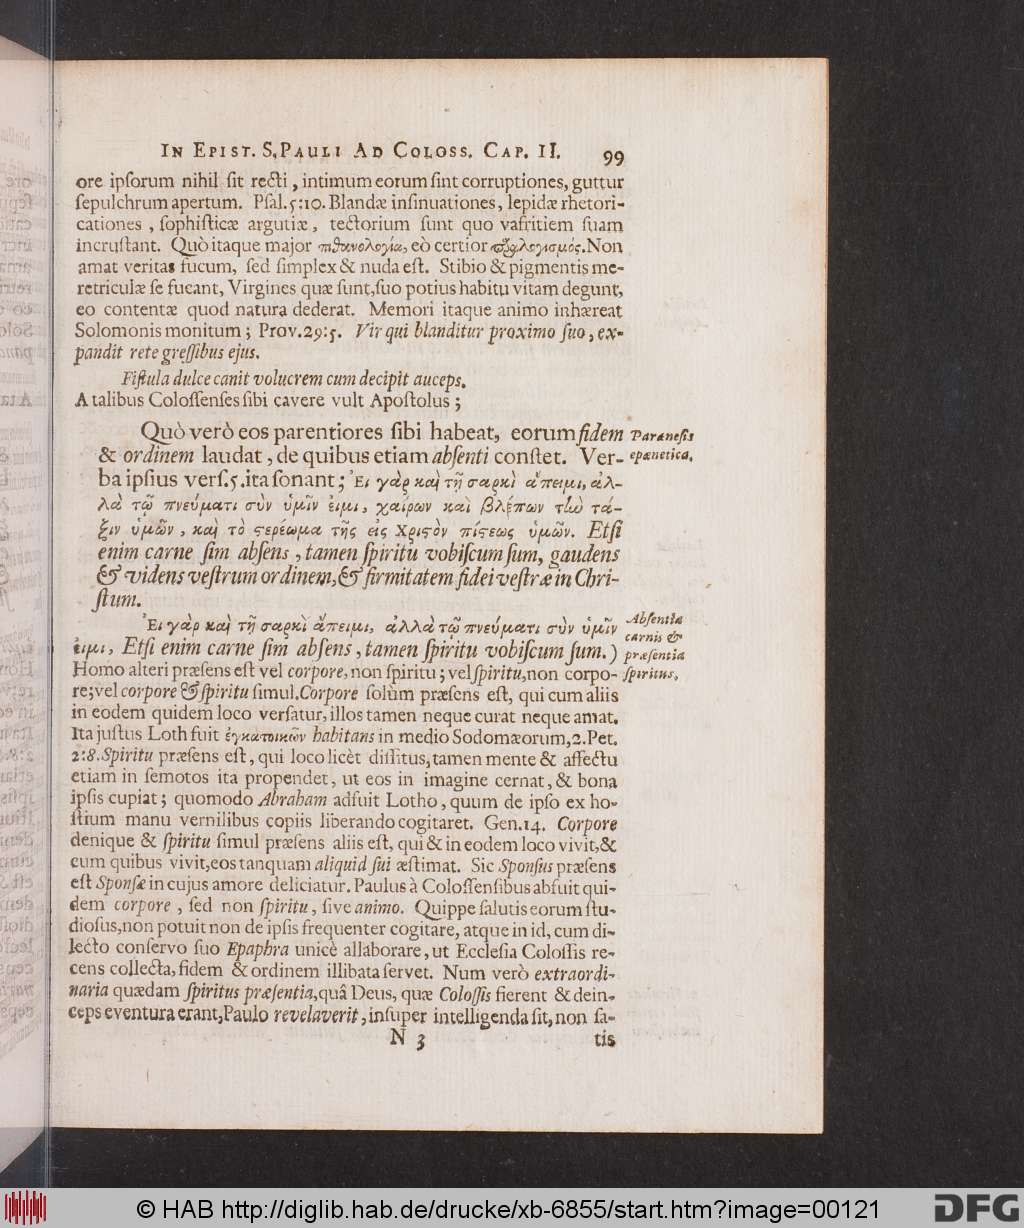 IN EPIST. S. PAULI AD COLOSS. CAP. II. 99
ore ipſorum nihil ſit recti, intimum eorum ſint corruptiones, guttur
ſepulchrum apertum. Pſal. 5:10. Blandæ inſinuationes, lepidæ rhetori-
cationes, ſophiſticæ argutiæ, tectorium ſunt quo vafritiem ſuam
incruſtant. Quò itaque major πιθανολογία, eò certior παραλογισμός. Non
amat veritas fucum, ſed ſimplex & nuda eſt. Stibio & pigmentis me-
retriculæ ſe fucant, Virgines quæ ſunt, ſuo potius habitu vitam degunt,
eo contentæ quod natura dederat. Memori itaque animo inhæreat
Solomonis monitum; Prov. 29:5. Vir qui blanditur proximo ſuo, ex-
pandit rete greſſibus ejus.
Fiſtula dulce canit volucrem cum decipit auceps.
A talibus Coloſſenſes ſibi cavere vult Apoſtolus;
Quò verò eos parentiores ſibi habeat, eorum fidem
& ordinem laudat, de quibus etiam abſenti conſtet. Ver-
ba ipſius verſ. 5. ita ſonant; Ἐι γὰρ καὶ τῇ σαρκὶ ἄπειμι, ἀλ-
λὰ τῷ πνεύματι σὺν ὑμῖν ἐιμι, χαίρων καὶ βλέπων τὼ τά-
ξιν ὑμῶν, καὶ τὸ ϛερέωμα τῆς ἐις Χριϛὸν πίϛεως ὑμῶν. Etſi
enim carne ſim abſens, tamen ſpiritu vobiſcum ſum, gaudens
& videns veſtrum ordinem, & firmitatem fidei veſtræ in Chri-
ſtum.
Parænesis
epænetica.
Ἐι γὰρ καὶ τῇ σαρκὶ ἄπειμι, ἀλλὰ τῷ πνεύματι σὺν ὑμῖν
ἐιμι, Etſi enim carne ſim abſens, tamen ſpiritu vobiſcum ſum.)
Homo alteri præſens eſt vel corpore, non ſpiritu; vel ſpiritu, non corpo-
re; vel corpore & ſpiritu ſimul. Corpore ſolùm præſens eſt, qui cum aliis
in eodem quidem loco verſatur, illos tamen neque curat neque amat.
Ita juſtus Loth fuit ἐγκατοικῶν habitans in medio Sodomæorum, 2. Pet.
2:8. Spiritu præſens eſt, qui loco licèt diſſitus, tamen mente & affectu
etiam in ſemotos ita propendet, ut eos in imagine cernat, & bona
ipſis cupiat; quomodo Abraham adfuit Lotho, quum de ipſo ex ho-
ſtium manu vernilibus copiis liberando cogitaret. Gen. 14. Corpore
denique & ſpiritu ſimul præſens aliis eſt, qui & in eodem loco vivit, &
cum quibus vivit, eos tanquam aliquid ſui æſtimat. Sic Sponſus præſens
eſt Sponſæ in cujus amore deliciatur. Paulus à Coloſſenſibus abfuit qui-
dem corpore, ſed non ſpiritu, ſive animo. Quippe ſalutis eorum ſtu-
dioſus, non potuit non de ipſis frequenter cogitare, atque in id, cum di-
lecto conſervo ſuo Epaphra unicè allaborare, ut Eccleſia Coloſſis re-
cens collecta, fidem & ordinem illibata ſervet. Num verò extraordi-
naria quædam ſpiritus præſentia, quâ Deus, quæ Coloſſis fierent & dein-
ceps eventura erant, Paulo revelaverit, inſuper intelligenda ſit, non ſa-
Abſentia
carnis &
præſentia
ſpiritus.
N 3 tis
© HAB http://diglib.hab.de/drucke/xb-6855/start.htm?image=00121
DFG